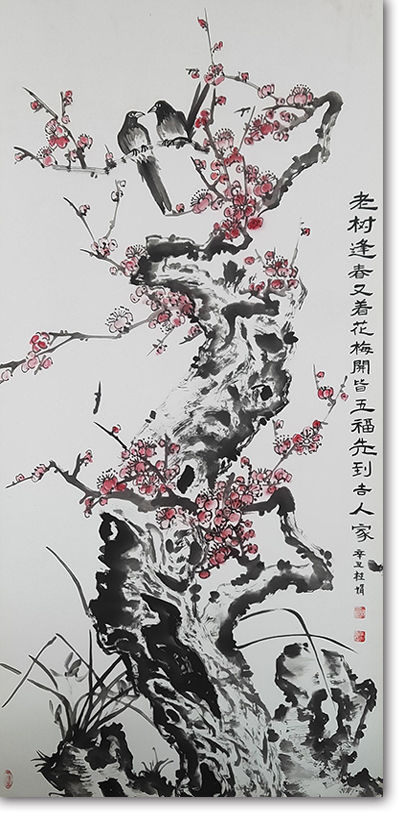 老树逢春又着花梅開皆五福先到吉人家 辛丑桂娟